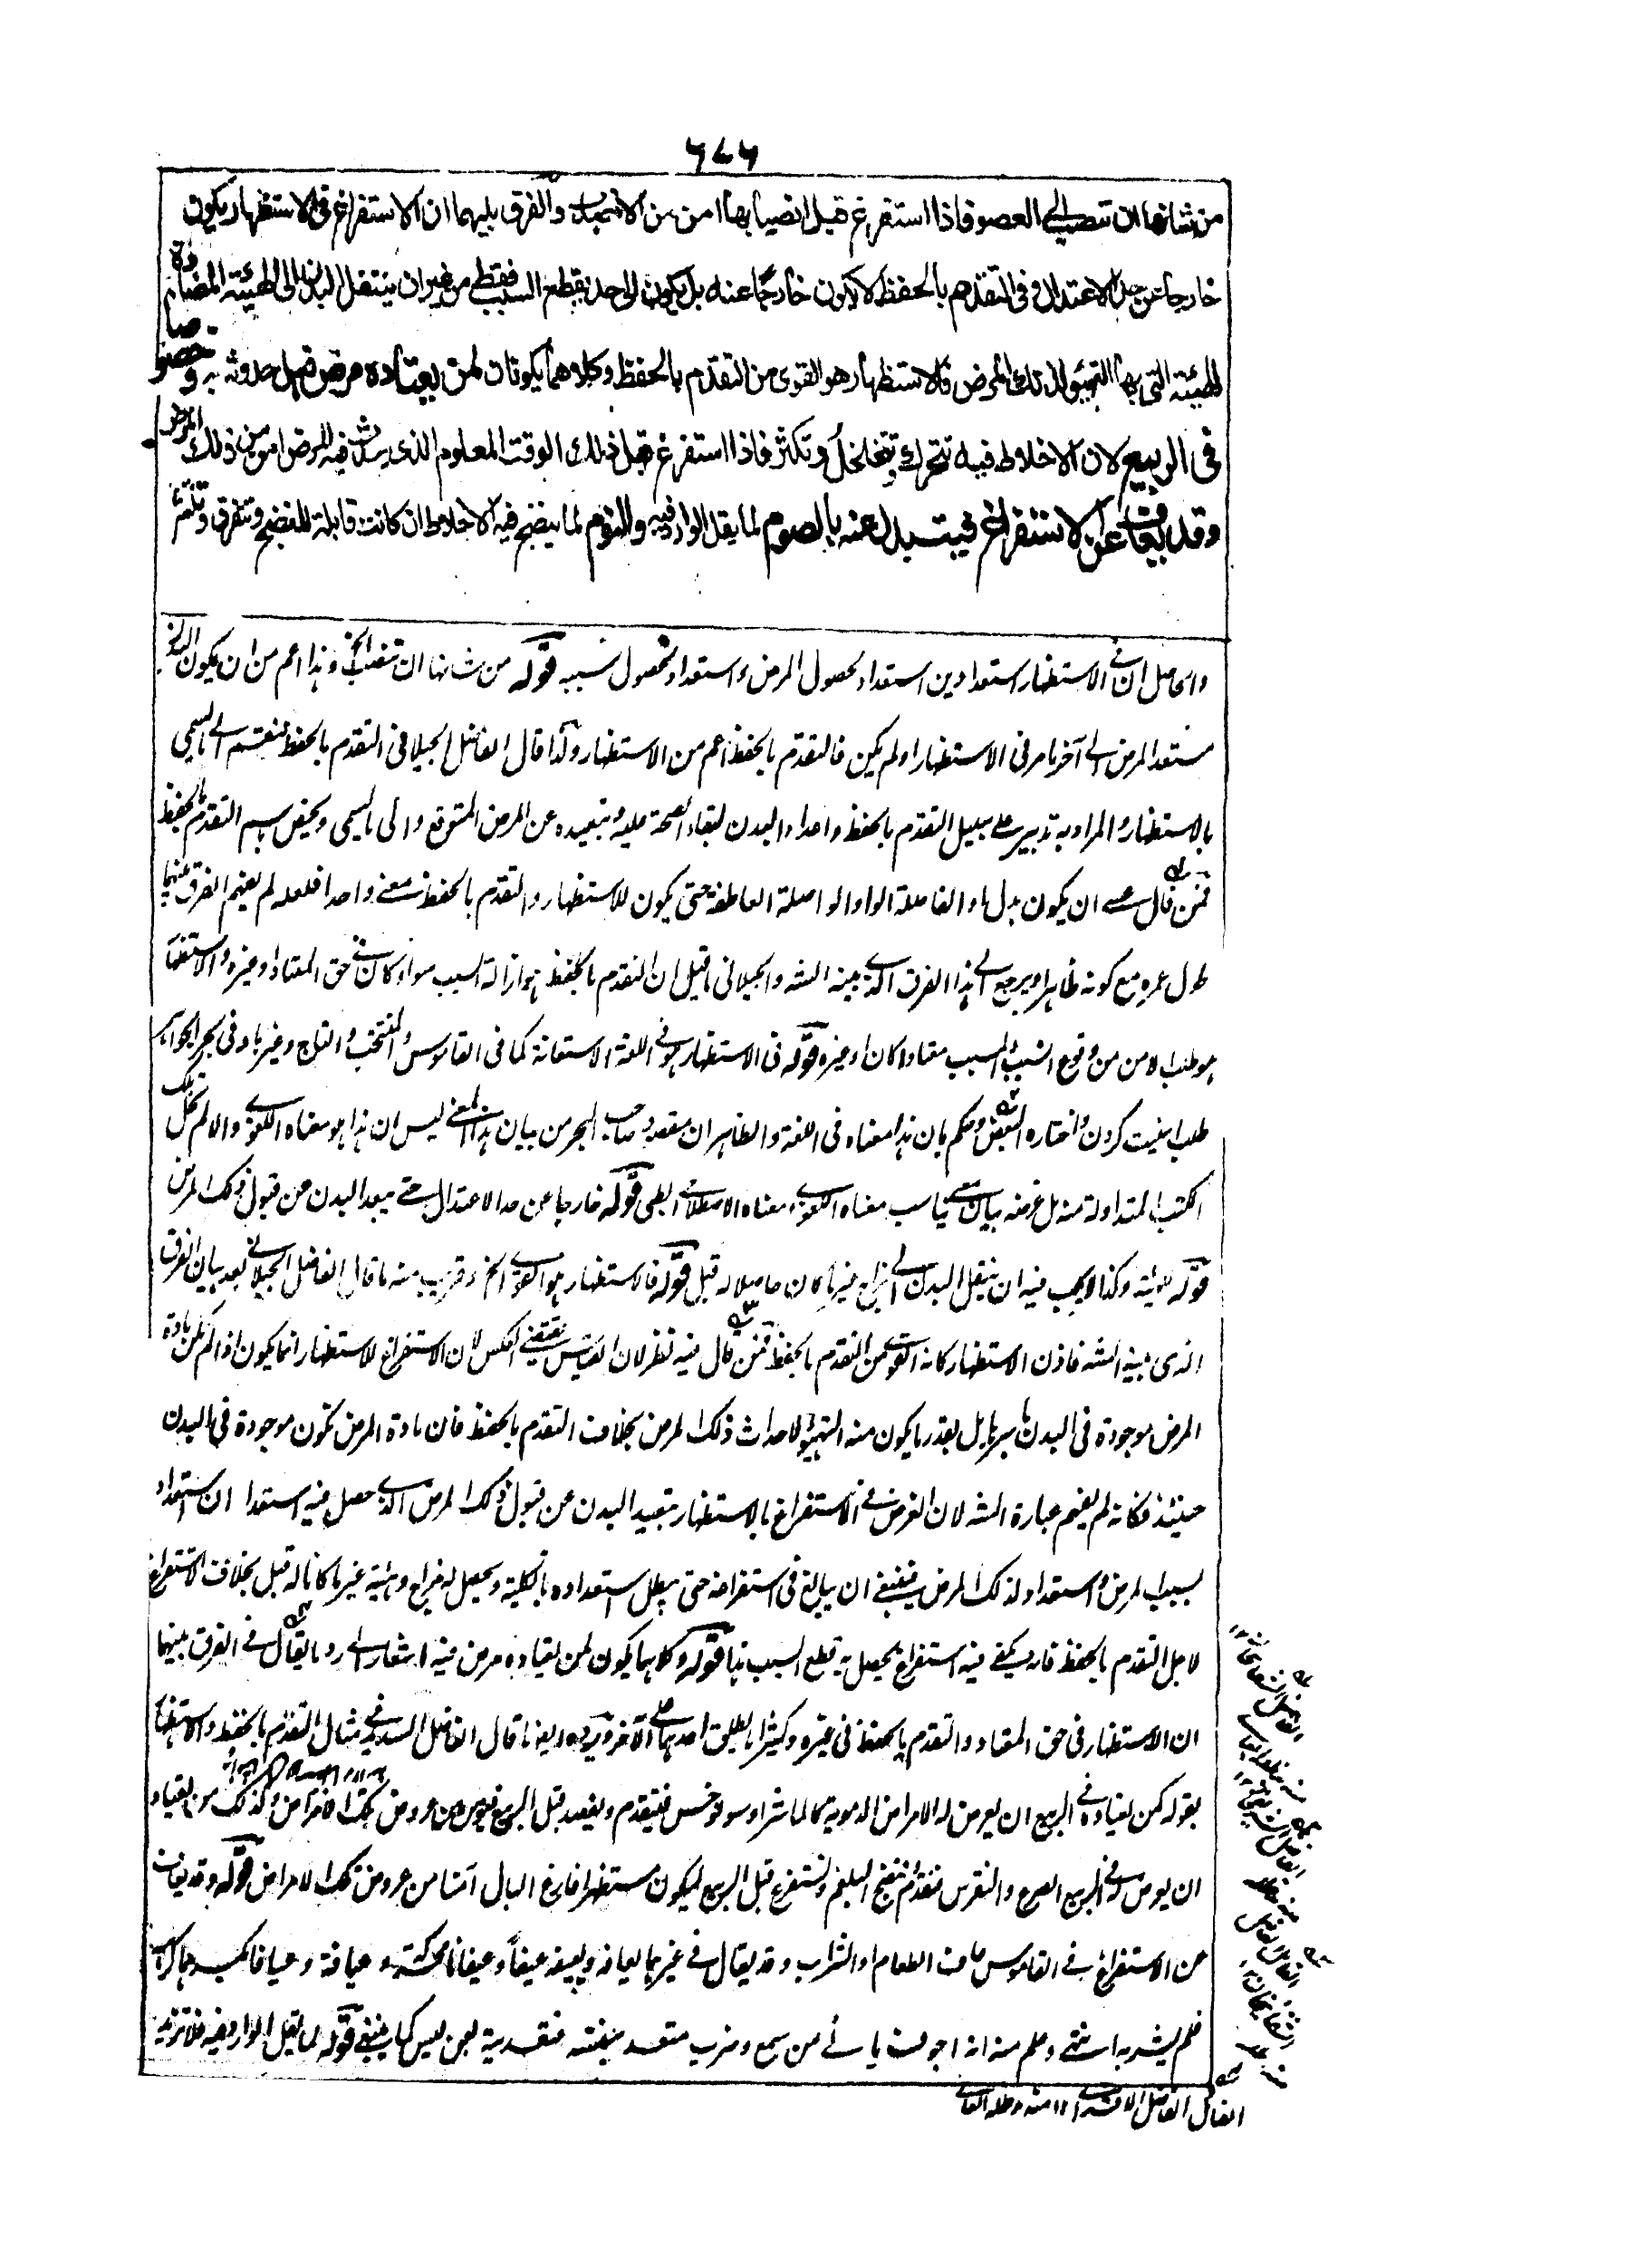 ٦٧٦
من شانها ان تنصب الى العضو فاذا استفرغ قبل انصبابها امن من الانصباب والفرق بينهما ان الاستفراغ فى الاستظهار يكون
خارجا عن حد الاعتدال وفى التقدم بالحفظ لا يكون خارجا عنه بل يكون الى حد يقطع السبب فقط من غير ان ينتقل البدن الى الهيئة المضادة
للهيئة التى بها التهيؤ لذلك المرض فالاستظهار هو القوى من التقدم بالحفظ وكلاهما يكونان لمن يعتاده مرض قبل حدوثه به وخصوصا
فى الربيع لان الاخلاط فيه تتحرك وتتخلخل وتكثر فاذا استفرغ قبل ذلك الوقت المعلوم الذى يحدث فيه المرض امن من ذلك المرض
وقد يعاف عن الاستفراغ فيتبدل عنه بالصوم لما يقل الوارد فيه والنوم لما ينضج فيه الاخلاط ان كانت قابلة للنضج وتتفرق وتلتئم
والحاصل ان فى الاستظهار استعدادين استعداد لحصول المرض واستعداد لحصول سببه قوله من شانها ان تنصب الخ وهذا اعم من ان يكون البدن
مستعد المرض الى آخر ما مر فى الاستظهار اولم يكن فالتقدم بالحفظ اعم من الاستظهار ولذا قال الفاضل الجيلانى التقدم بالحفظ ينقسم الى ما يسمى
بالاستظهار والمراد به تدبير على سبيل التقدم بالحفظ واعداد البدن لبقاء الصحة عليه وتبعيده عن المرض المتوقع والى ما يسمى ويخص باسم التقدم بالحفظ
فمن قال عسى ان يكون بدل او الفاصلة الواو الواصلة العاطفة حتى يكون للاستظهار والتقدم بالحفظ معنى واحدا فلعله لم يفهم الفرق بينهما
طول عمره مع كونه ظاهرا ويرجع الى هذا الفرق الذى بينه الشه والجيلانى ما قيل ان التقدم بالحفظ هو ازالة السبب سواء كان فى حق المعتاد او غيره والاستظهار
هو طلب الامن من وقوع السبب والمسبب معتادا كان او غيره قوله فى الاستظهار هو فى اللغة الاستعانة كما فى القاموس والمنتخب والتاج وغيرها وفى بحر الجواهر
طلب اعنيت كردن واختاره البعض وحكم بان هذا معناه فى اللغة والظاهر ان مقصود صاحب البحر من بيان هذا المعنى ليس ان هذا هو معناه اللغوى والا لم تخل تلك
الكتب المتداولة منه بل غرضه بيان معنى يناسب معناه اللغوى ومعناه الاصطلاحى الطبى قوله خارجا عن حد الاعتدال حتى يبعد البدن عن قبول ذلك المرض
قوله للهيئة وكذا لا يجب فيه ان ينتقل البدن الى مزاج غير ما كان حاصلا له قبل قوله فالاستظهار هو القوى الخ وقريب منه ما قال الفاضل الجيلانى بعد بيان الفرق
الذى بينه الشه فاذن الاستظهار كانه اقوى من التقدم بالحفظ فمن قال فيه نظر لان القياس يقتضى العكس لان الاستفراغ للاستظهار انما يكون اذا لم تكن مادة
المرض موجودة فى البدن باسرها بل بقدر ما يكون منه التهيؤ لاحداث ذلك المرض بخلاف التقدم بالحفظ فان مادة المرض تكون موجودة فى البدن
حينئذ فكانه لم يفهم عبارة الشه لان الغرض فى الاستفراغ بالاستظهار تبعيد البدن عن قبول ذلك المرض الذى حصل فيه استعدادان استعداد
لسبب المرض واستعداد لذلك المرض فينبغى ان يبالغ فى استفراغه حتى يبطل استعداده بالكلية ويحصل له مزاج وهيئة غير ما كانا له قبل بخلاف الاستفراغ
لاجل التقدم بالحفظ فانه يكفى فيه استفراغ يحصل به قطع السبب هذا قوله وكلاهما يكون لمن يعتاده مرض فيه اشعار الى رد ما يقال فى الفرق بينهما
ان الاستظهار فى حق المعتاد والتقدم بالحفظ فى غيره وكثيرا ما يطلق احدهما على الآخر ويرده ايضا ما قال الفاضل السديدى فى مثال التقدم بالحفظ والاستظهار
بقوله كمن يعتاده فى الربيع ان يعرض له الامراض الدموية كالماشرا وسونوخس فيتقدم ويفصد قبل الربيع فيؤمن من عروض تلك الامراض وكذلك من يعتاد
ان يعرض له فى الربيع الصرع والنقرس فتقدم بنضج البلغم ويستفرغ قبل الربيع ليكون مستظهرا فارغ البال آمنا من عروض تلك الامراض قوله وقد يعاف
عن الاستفراغ فى القاموس عاف الطعام والشراب وقد يقال فى غيرهما يعافه ويعيفه عيفاً وعيفانا محركة وعيافة وعيافا بكسرهما كرهه
فلم يشربه انتهى وعلم منه انه اجوف يائى من سمع وضرب متعد بنفسه فتعديته بعن ليس كما ينبغى قوله لما يقل الوارد فيه فلا تزيد
القائل الفاضل الاقسرائى ١٢ منه مد ظله العالى